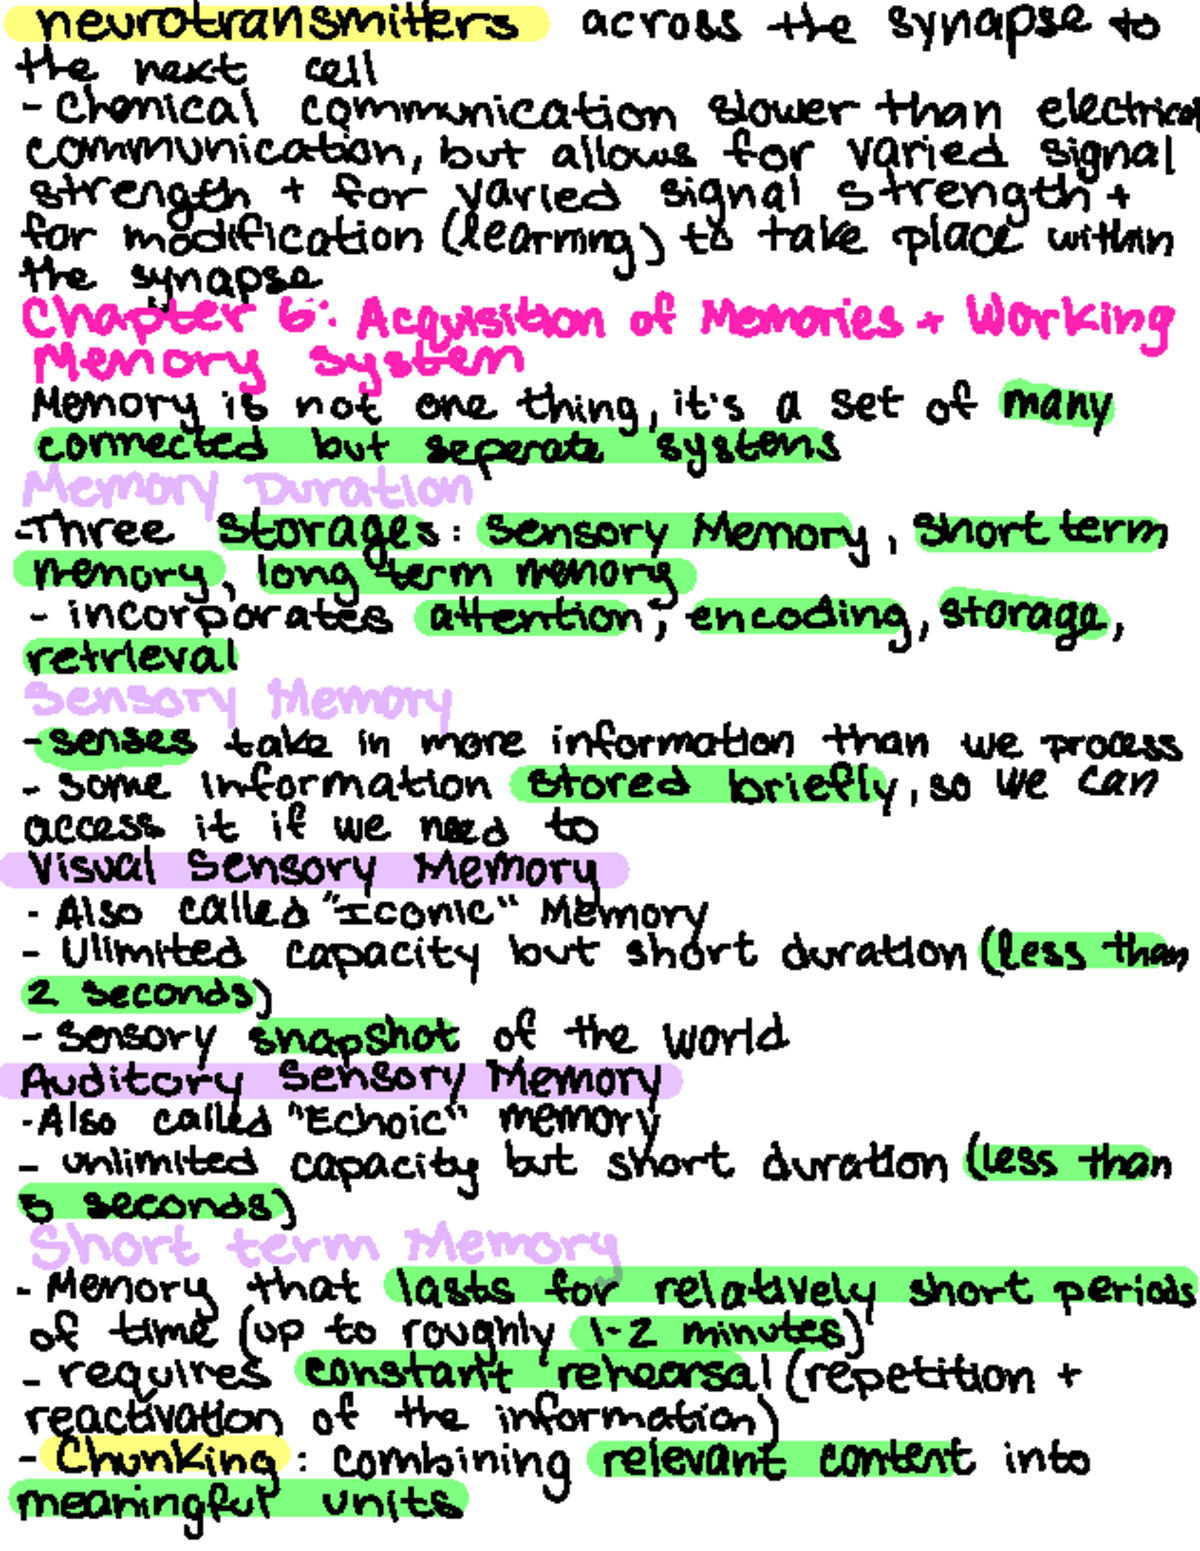 neurotransmitters across the synapse to
the next cell
- Chemical communication slower than electrical
communication, but allows for varied signal
strength + for varied signal strength +
for modification (learning) to take place within
the synapse
Chapter 6: Acquisition of Memories + Working
Memory system
Memory is not one thing, it's a set of many
connected but seperate systems
Memory Duration
-Three storages: Sensory Memory, short term
memory, long term memory
- incorporates attention, encoding, storage,
retrieval
Sensory Memory
- senses take in more information than we process
- some information stored briefly, so we can
access it if we need to
Visual Sensory Memory
- Also called "Iconic" Memory
- Ulimited capacity but short duration (less than
2 seconds)
- sensory snapshot of the world
Auditory Sensory Memory
-Also called "Echoic" memory
- unlimited capacity but short duration (less than
5 seconds)
Short term Memory
- Memory that lasts for relatively short periods
of time (up to roughly 1-2 minutes)
- requires constant rehearsal (repetition +
reactivation of the information)
- Chunking: combining relevant content into
meaningful units